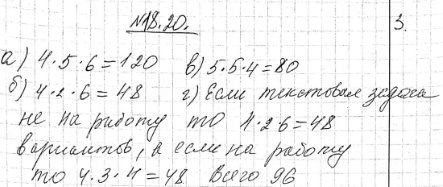 №18.20. 3.
а) 4·5·6=120 в) 5·5·4=80
б) 4·2·6=48 г) Если текстовая задача
не на работу то 4·2 6=48
вариантов, а если на работу
то 4·3·4=48 Всего 96